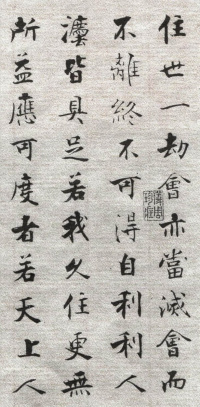 住世一劫會亦當滅會而
不離終不可得自利利人
法皆具足若我久住更無
所益應可度者若天上人